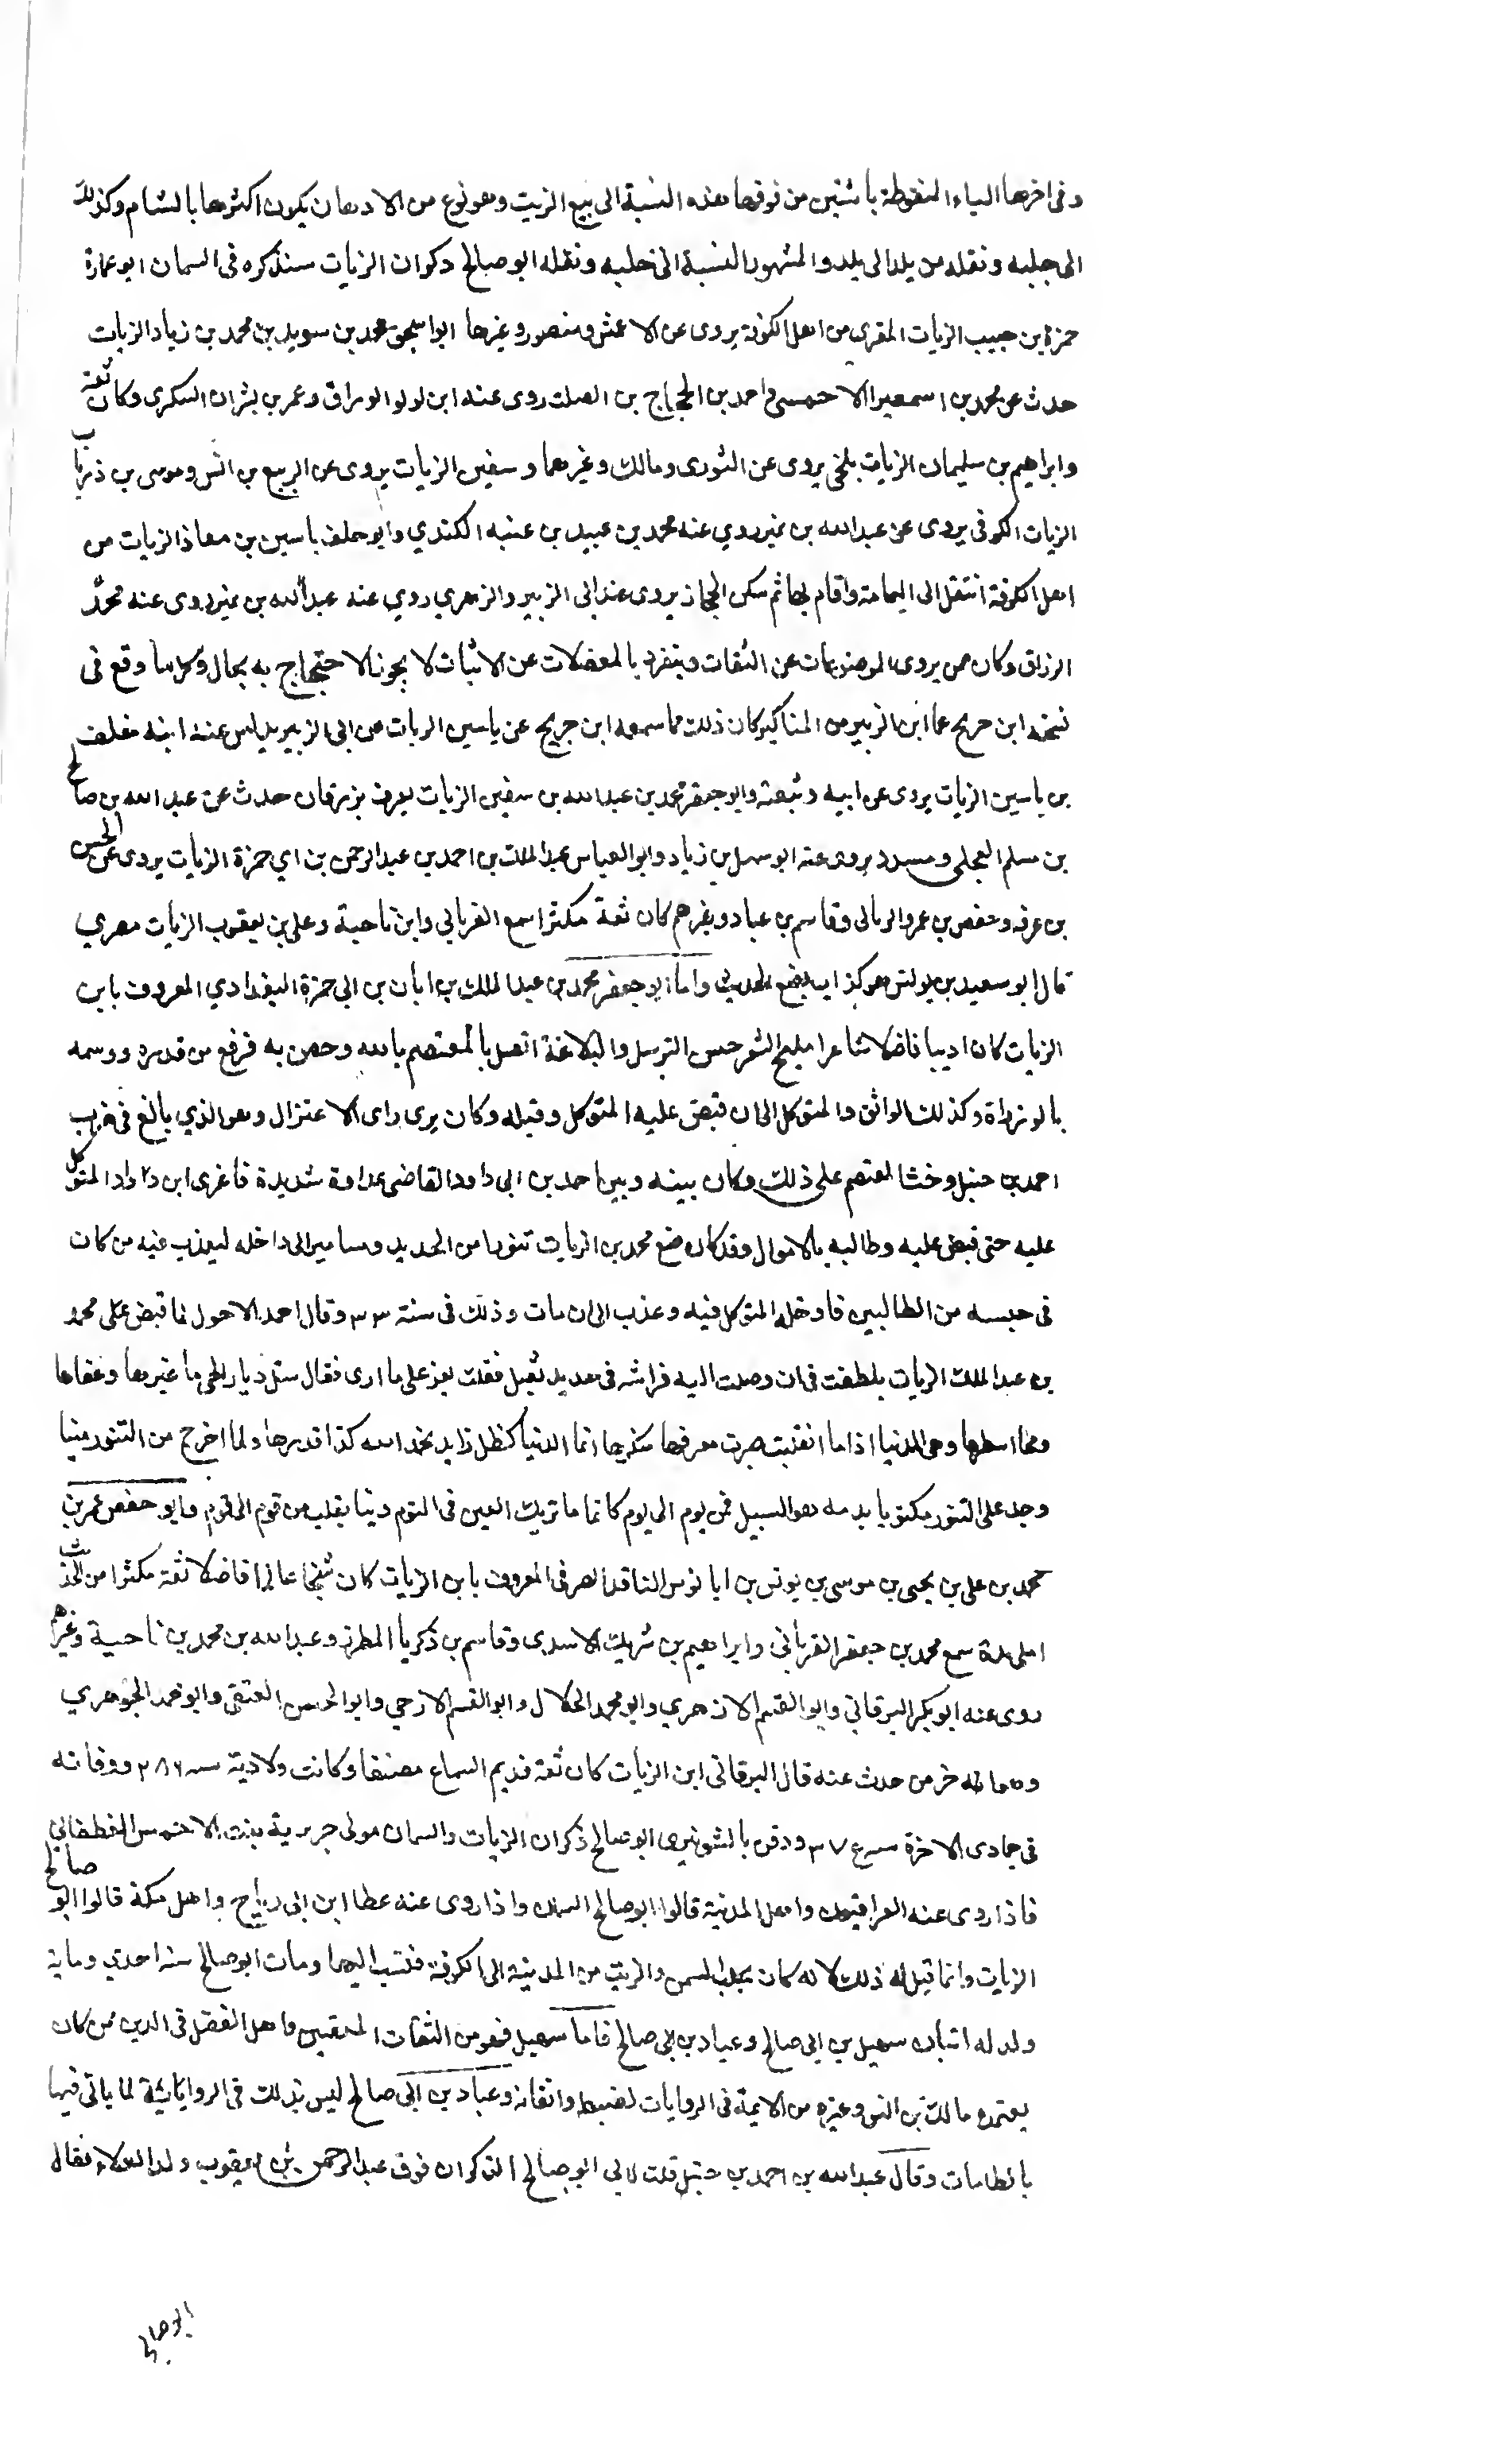 وفى اخرها الياء المنقوطة باثنتين من فوقها هذه النسبة الى بيع الزيت وهو نوع من الادهان يكون اكثرها بالشام وكذلك
الى جلبه ونقله من بلد الى بلد والمشهور بالنسبة الى جلبه ونقله ابو صالح دكوان الزيات سنذكره فى السمان ابو عمارة
حمزة بن حبيب الزيات المقرى من اهل الكوفة يروى عن الاعمش ومنصور وغيرها ابو اسحق محمد بن سويد بن محمد بن زياد الزيات
حدث عن محمد بن اسمعيل الاحمسى واحمد بن الحجاج بن الصلت روى عنه ابن لولو الوراق وعمر بن بشران السكرى وكان ثقة
وابراهيم بن سليمان الزيات بلخى يروى عن الثورى ومالك وغيرهما وسفين الزيات يروى عن الربيع بن انس وموسى بن
الزيات الكوفى يروى عن عبد الله بن نمير روي عنه محمد بن عبيد بن عتبه الكندي وابو خلف ياسين بن معاذ الزيات من
اهل الكوفة انتقل الى اليمامة واقام بها ثم سكن الحجاز يروى عن ابى الزبير والزهري روي عنه عبد الله بن نمير روى عنه محمد
الرزاق وكان ممن يروى الموضوعات عن الثقات وينفرد بالمعضلات عن الاثبات لا يجوز الاحتجاج به بحال وكل ما وقع فى
نسخة ابن جريج عن ابى الزبير من المناكير كان ذلك مما سمعه ابن جريج عن ياسين الزيات عن ابى الزبير يدلس عنه ابنه خلف
بن ياسين الزيات يروى عن ابيه وابو جعفر محمد بن عبد الله بن سفين الزيات يعرف بزرقان حدث عن عبد الله بن صالح
بن مسلم العجلى ومسدد يروى عنه ابو سهل بن زياد وابو العباس عبد الملك بن احمد بن عبد الرحمن بن ابي حمزة الزيات يروى عن الحسن
بن عرفه وحفص بن عمرو الربالى وقاسم بن عباد وغيرهم كان ثقة مكثرا سمع الفريابي وابن ناجية وعلى بن يعقوب الزيات مصري
قال ابو سعيد بن يونس هو كذاب يضع الحديث واما ابو جعفر محمد بن عبد الملك بن ابان بن ابى حمزة البغدادي المعروف بابن
الزيات كان اديبا فاضلا شاعرا مليح الشعر حسن الترسل والبلاغة اتصل بالمعتصم بالله وخص به فرفع من قدره ووسمه
بالوزارة وكذلك الواثق والمتوكل الى ان قبض عليه المتوكل وقتله وكان يرى راى الاعتزال وهو الذي بالغ فى ضرب
احمد بن حنبل وحث المعتصم على ذلك وكان بينه وبين احمد بن ابى داود القاضى عداوة شديدة فاغرى ابن داود المتوكل
عليه حتى قبض عليه وطالبه بالاموال وقد كان صنع محمد بن الزيات تنورا من الحديد ومسامير الى داخله ليعذب فيه من كان
فى حبسه من الطالبين فادخله المتوكل فيه وعذب الى ان مات وذلك فى سنة ٣٣ وقال احمد الاحول لما قبض على محمد
بن عبد الملك الزيات تلطفت فى ان وصلت اليه فراشه فى حديد ثقيل فقلت يعز على ما ارى فقال سل ديار الحى ما غيرها وعفاها
ومحا وهى الدنيا اذا ما انقلبت صيرت معروفها منكرها انما الدنيا كظل زايد نحمد الله كذا قدرها ولما اخرج من التنور ميتا
وجد على التنور مكتوبا بدمه هو السبيل فمن يوم الى يوم كانما ما تريك العين فى النوم دنيا تقلب من قوم الى قوم وابو حفص عمر بن
محمد بن على بن يحيى بن موسى بن يونس بن الناقد الصرفى المعروف بابن الزيات كان شيخا عالما فاضلا ثقة مكثرا من الحديث
سمع محمد بن جعفر الفريابي وابراهيم بن شريك الاسدى وقاسم بن ذكريا المطرز وعبد الله بن محمد بن ناحية وغيرهم
روى عنه ابو بكر البرقاني وابو القسم الازهري وابو محمد الخلال وابو القسم الازجي وابو الحسن العتقى وابو محمد الجوهري
وهما اخر من حدث عنه قال البرقانى ابن الزيات كان ثقة قديم السماع مصنفا وكانت ولادته سنة ٢٨٦ ووفاته
فى جمادى الاخرة سنة ٣٧ ودفن بالشونيزى ابو صالح ذكوان الزيات والسمان مولى جويرية بنت الاحمس الغطفاني
فاذا روى عنه العراقيون واهل المدينة قالوا ابو صالح السمان واذا روى عنه عطا ابن ابى رباح واهل مكة قالوا ابو صالح
الزيات وانما قيل له ذلك لانه كان يجلب السمن والزيت من المدينة الى الكوفة فنسب اليهما ومات ابو صالح سنة احدي وماية
ولد له ابنان سهيل بن ابى صالح وعباد بن ابى صالح فاما سهيل فهو من الثقات المتقنين واهل الفضل فى الدين ممن كان
يعتمده مالك بن انس وغيره من الايمة فى الروايات لضبطه واتقانه وعباد بن ابى صالح ليس بذلك فى الرواية لما ياتى فيها
بالطامات وقال عبد الله بن احمد بن حنبل قلت لابى ابو صالح الذكوان فوق عبد الرحمن بن يعقوب ولد العلاء فقال
ابو صالح